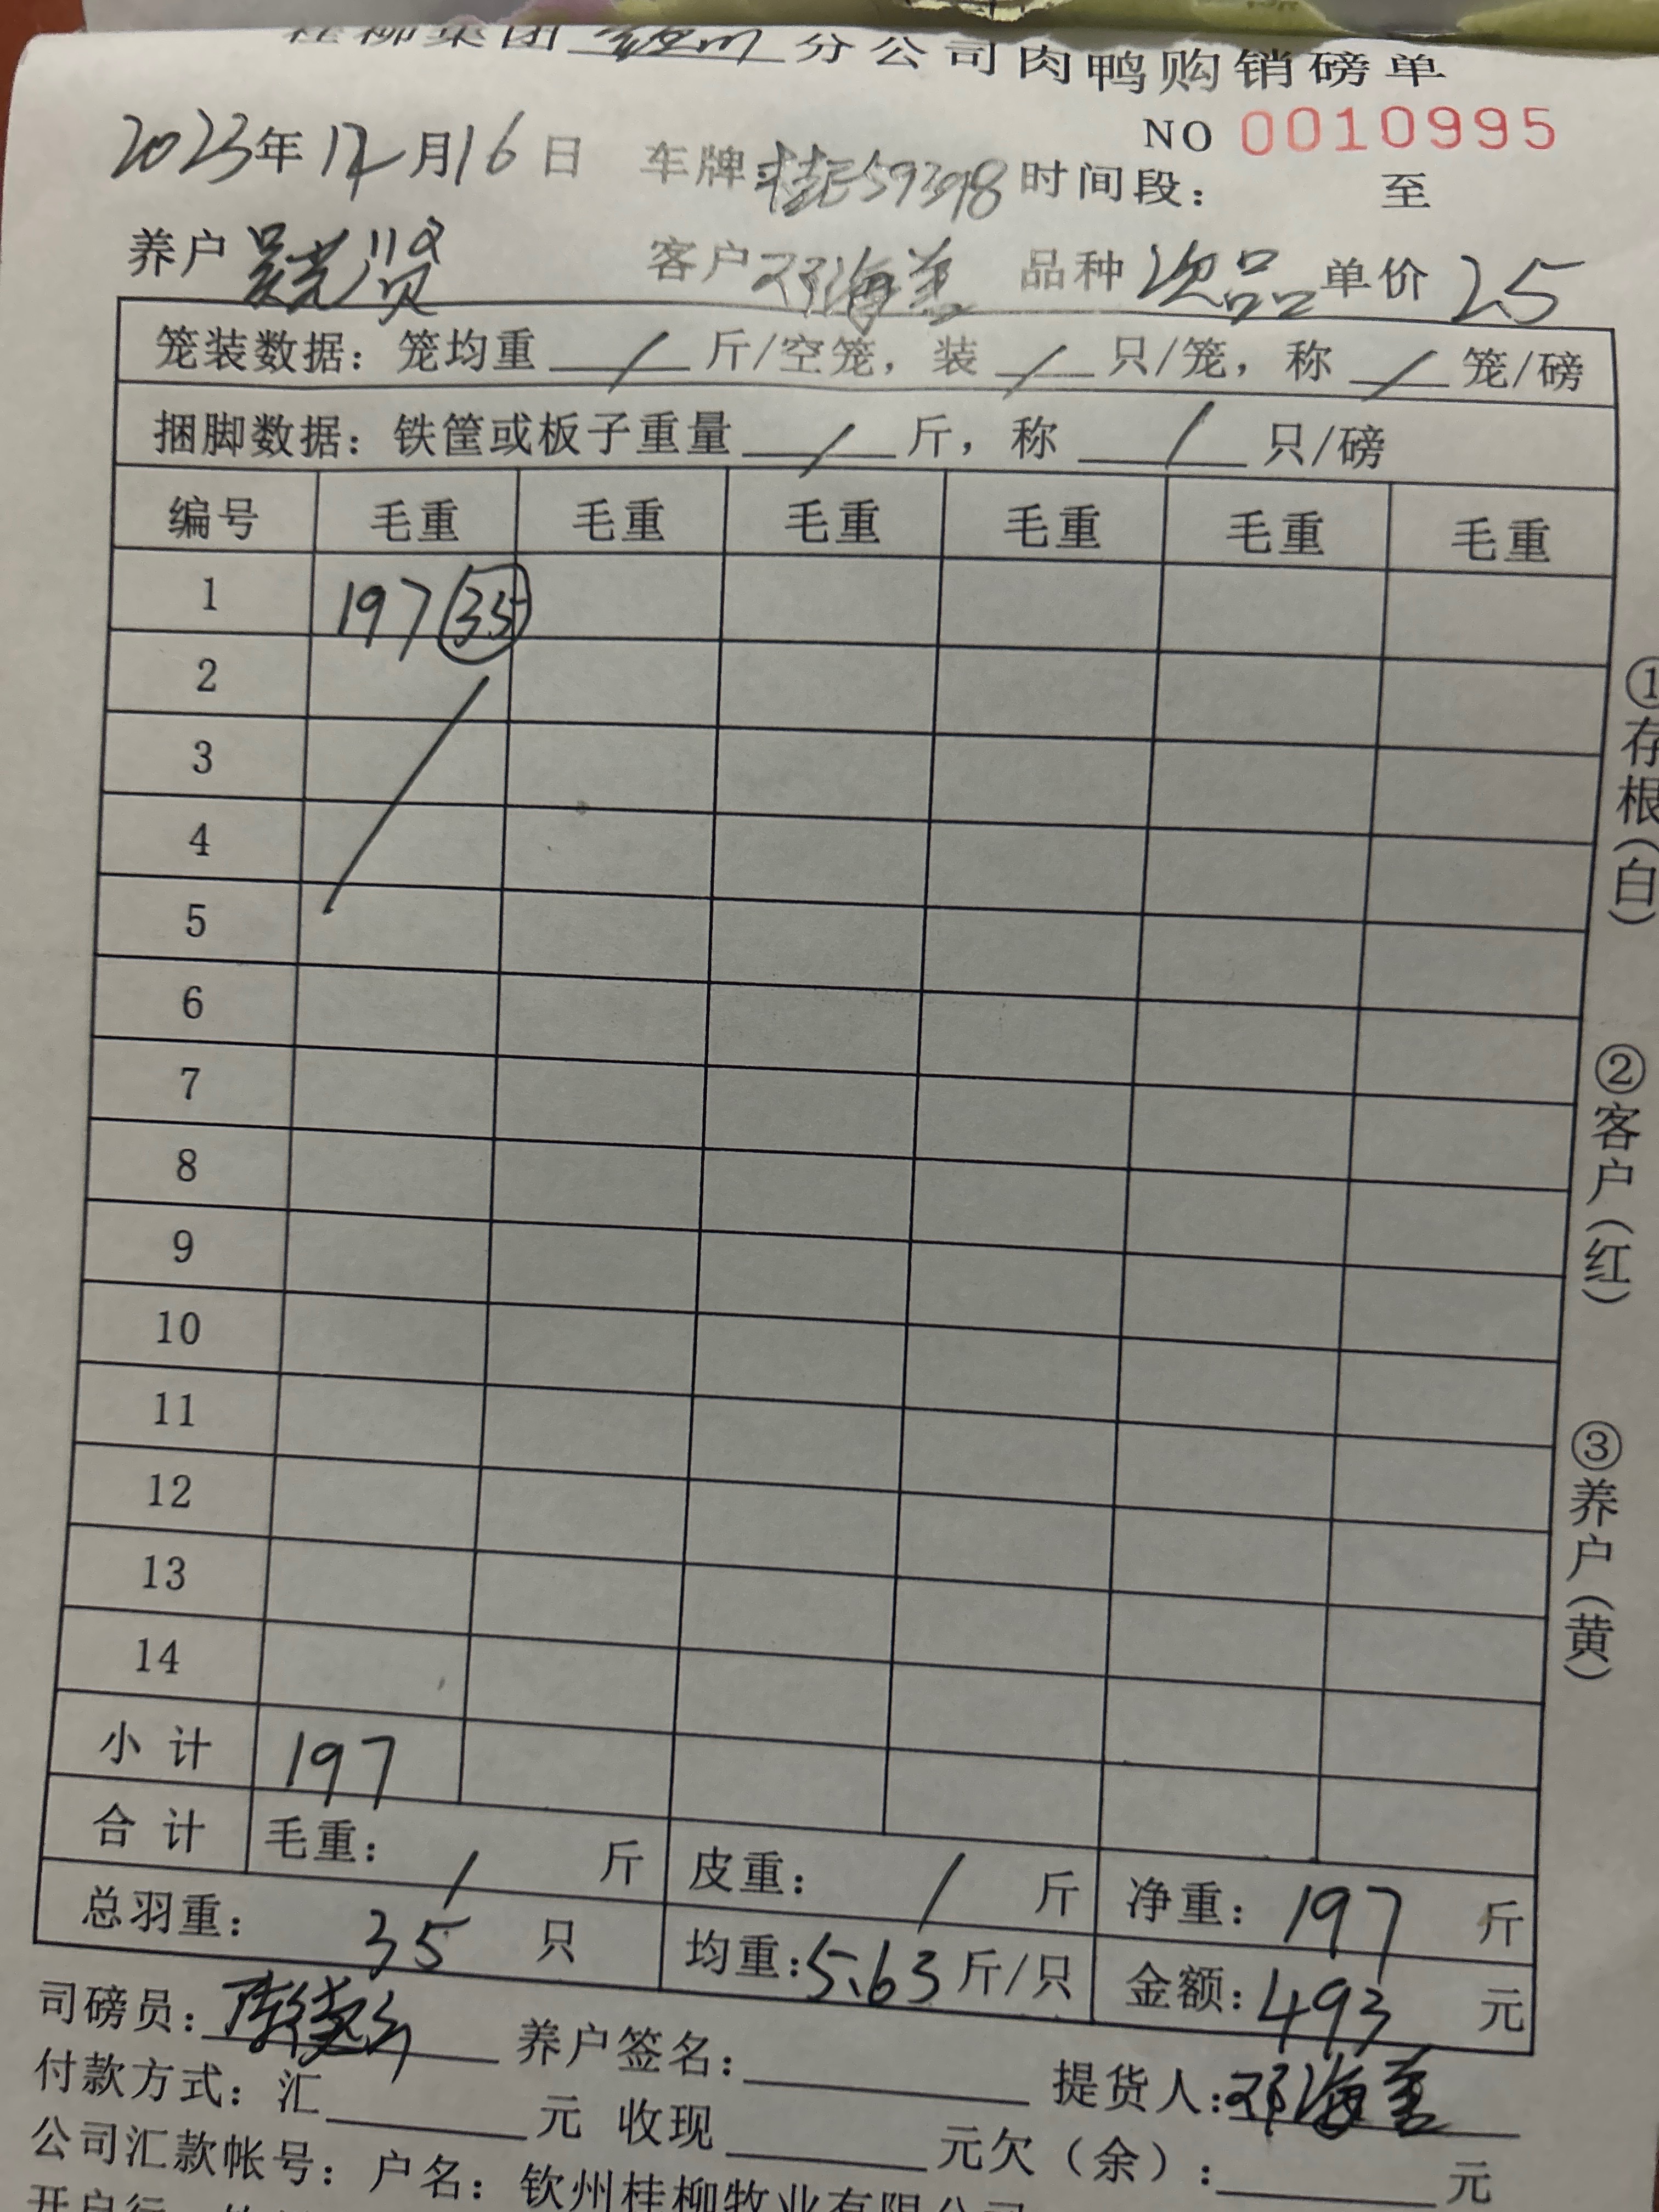 桂柳集团 分公司肉鸭购销磅单
NO 0010995
2023年12月16日 车牌: 时间段: 至
养户 吴芳贤 客户 邓海 品种 次品 单价 25
笼装数据:笼均重 / 斤/空笼,装 / 只/笼,称 / 笼/磅
捆脚数据:铁筐或板子重量 / 斤,称 / 只/磅
编号 毛重 毛重 毛重 毛重 毛重 毛重
1 197 35
2
3
4
5
6
7
8
9
10
11
12
13
14
小计 197
合计 毛重: / 斤 皮重: / 斤 净重: 197 斤
总羽重: 35 只 均重: 5.63 斤/只 金额: 493 元
司磅员: 养户签名: 提货人: 邓海
付款方式:汇 元 收现 元欠(余): 元
公司汇款帐号:户名:钦州桂柳牧业有限公司
开户行
①存根(白)
②客户(红)
③养户(黄)